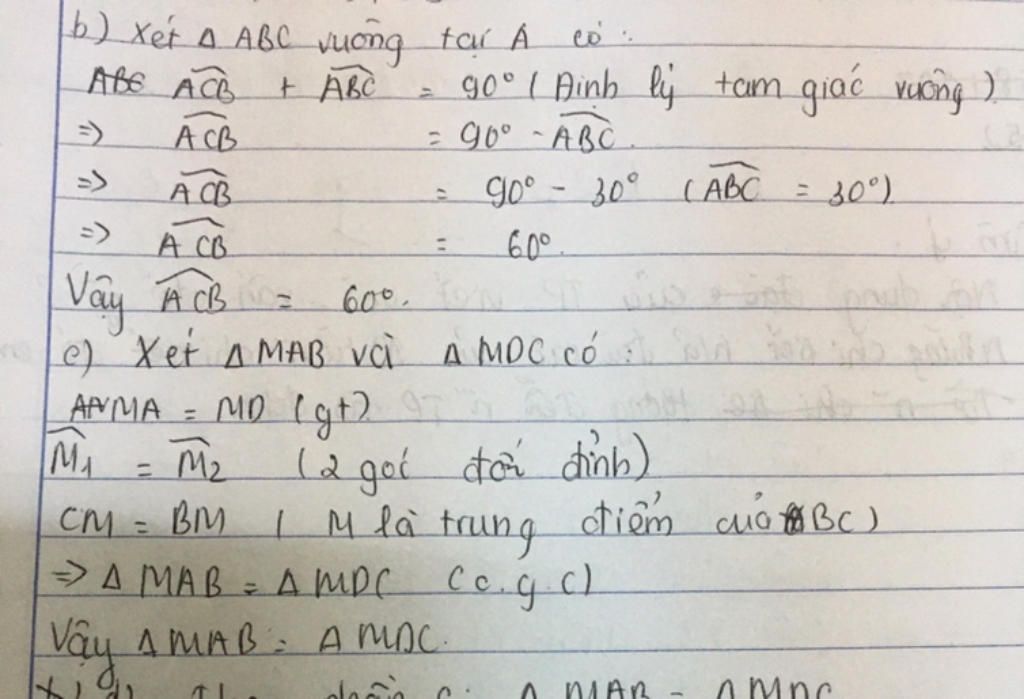 b) Xét Δ ABC vuông tại A có :
ABC ACB + ABC = 90° ( Định lý tam giác vuông )
=> ACB = 90° - ABC.
=> ACB = 90° - 30° ( ABC = 30°)
=> ACB = 60°.
Vậy ACB = 60°.
c) Xét Δ MAB và Δ MDC có :
MA = MD ( gt )
M1 = M2 ( 2 góc đối đỉnh )
CM = BM ( M là trung điểm của BC )
=> Δ MAB = Δ MDC ( c . g . c )
Vậy Δ MAB = Δ MDC.
c: Δ MAB = Δ MDC